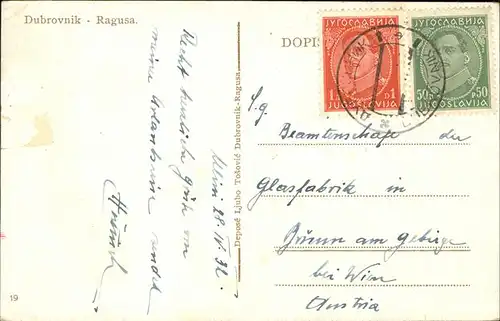 Dubrovnik - Ragusa.
DOPIS
ЈУГОСЛАВИЈА
1 D
D 1
JUGOSLAVIJA
ЈУГОСЛАВИЈА
50 P
P 50
JUGOSLAVIJA
Mlini 28. IV. 32.
Recht herzliche Grüße von
meine
Heinrich
Deposé Ljubo Tošović Dubrovnik-Ragusa.
S.g.
Beamtenschaft der
Glasfabrik in
Brunn am Gebirge
bei Wien
Austria
19